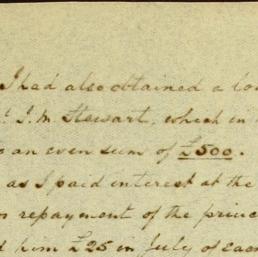 I had also obtained a
J. M. Stewart, which in
an even sum of £500.
as I paid interest at the
repayment of the
him £25 in July of each